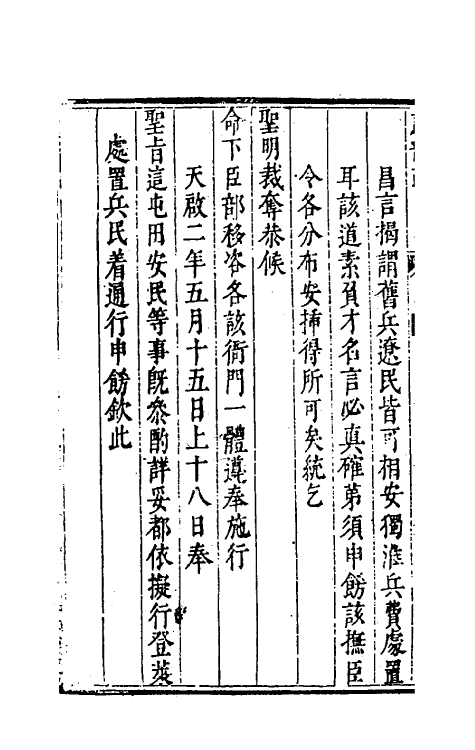 昌言揭謂舊兵遼民皆可相安獨淮兵費處置
耳該道素負才名言必真確第須申飭該撫臣
令各分布安插得所可矣統乞
聖明裁奪恭候
命下臣部移咨各該衙門一體遵奉施行
天啟二年五月十五日上十八日奉
聖旨這屯田安民等事既叅酌詳妥都依擬行登萊
處置兵民着通行申飭欽此